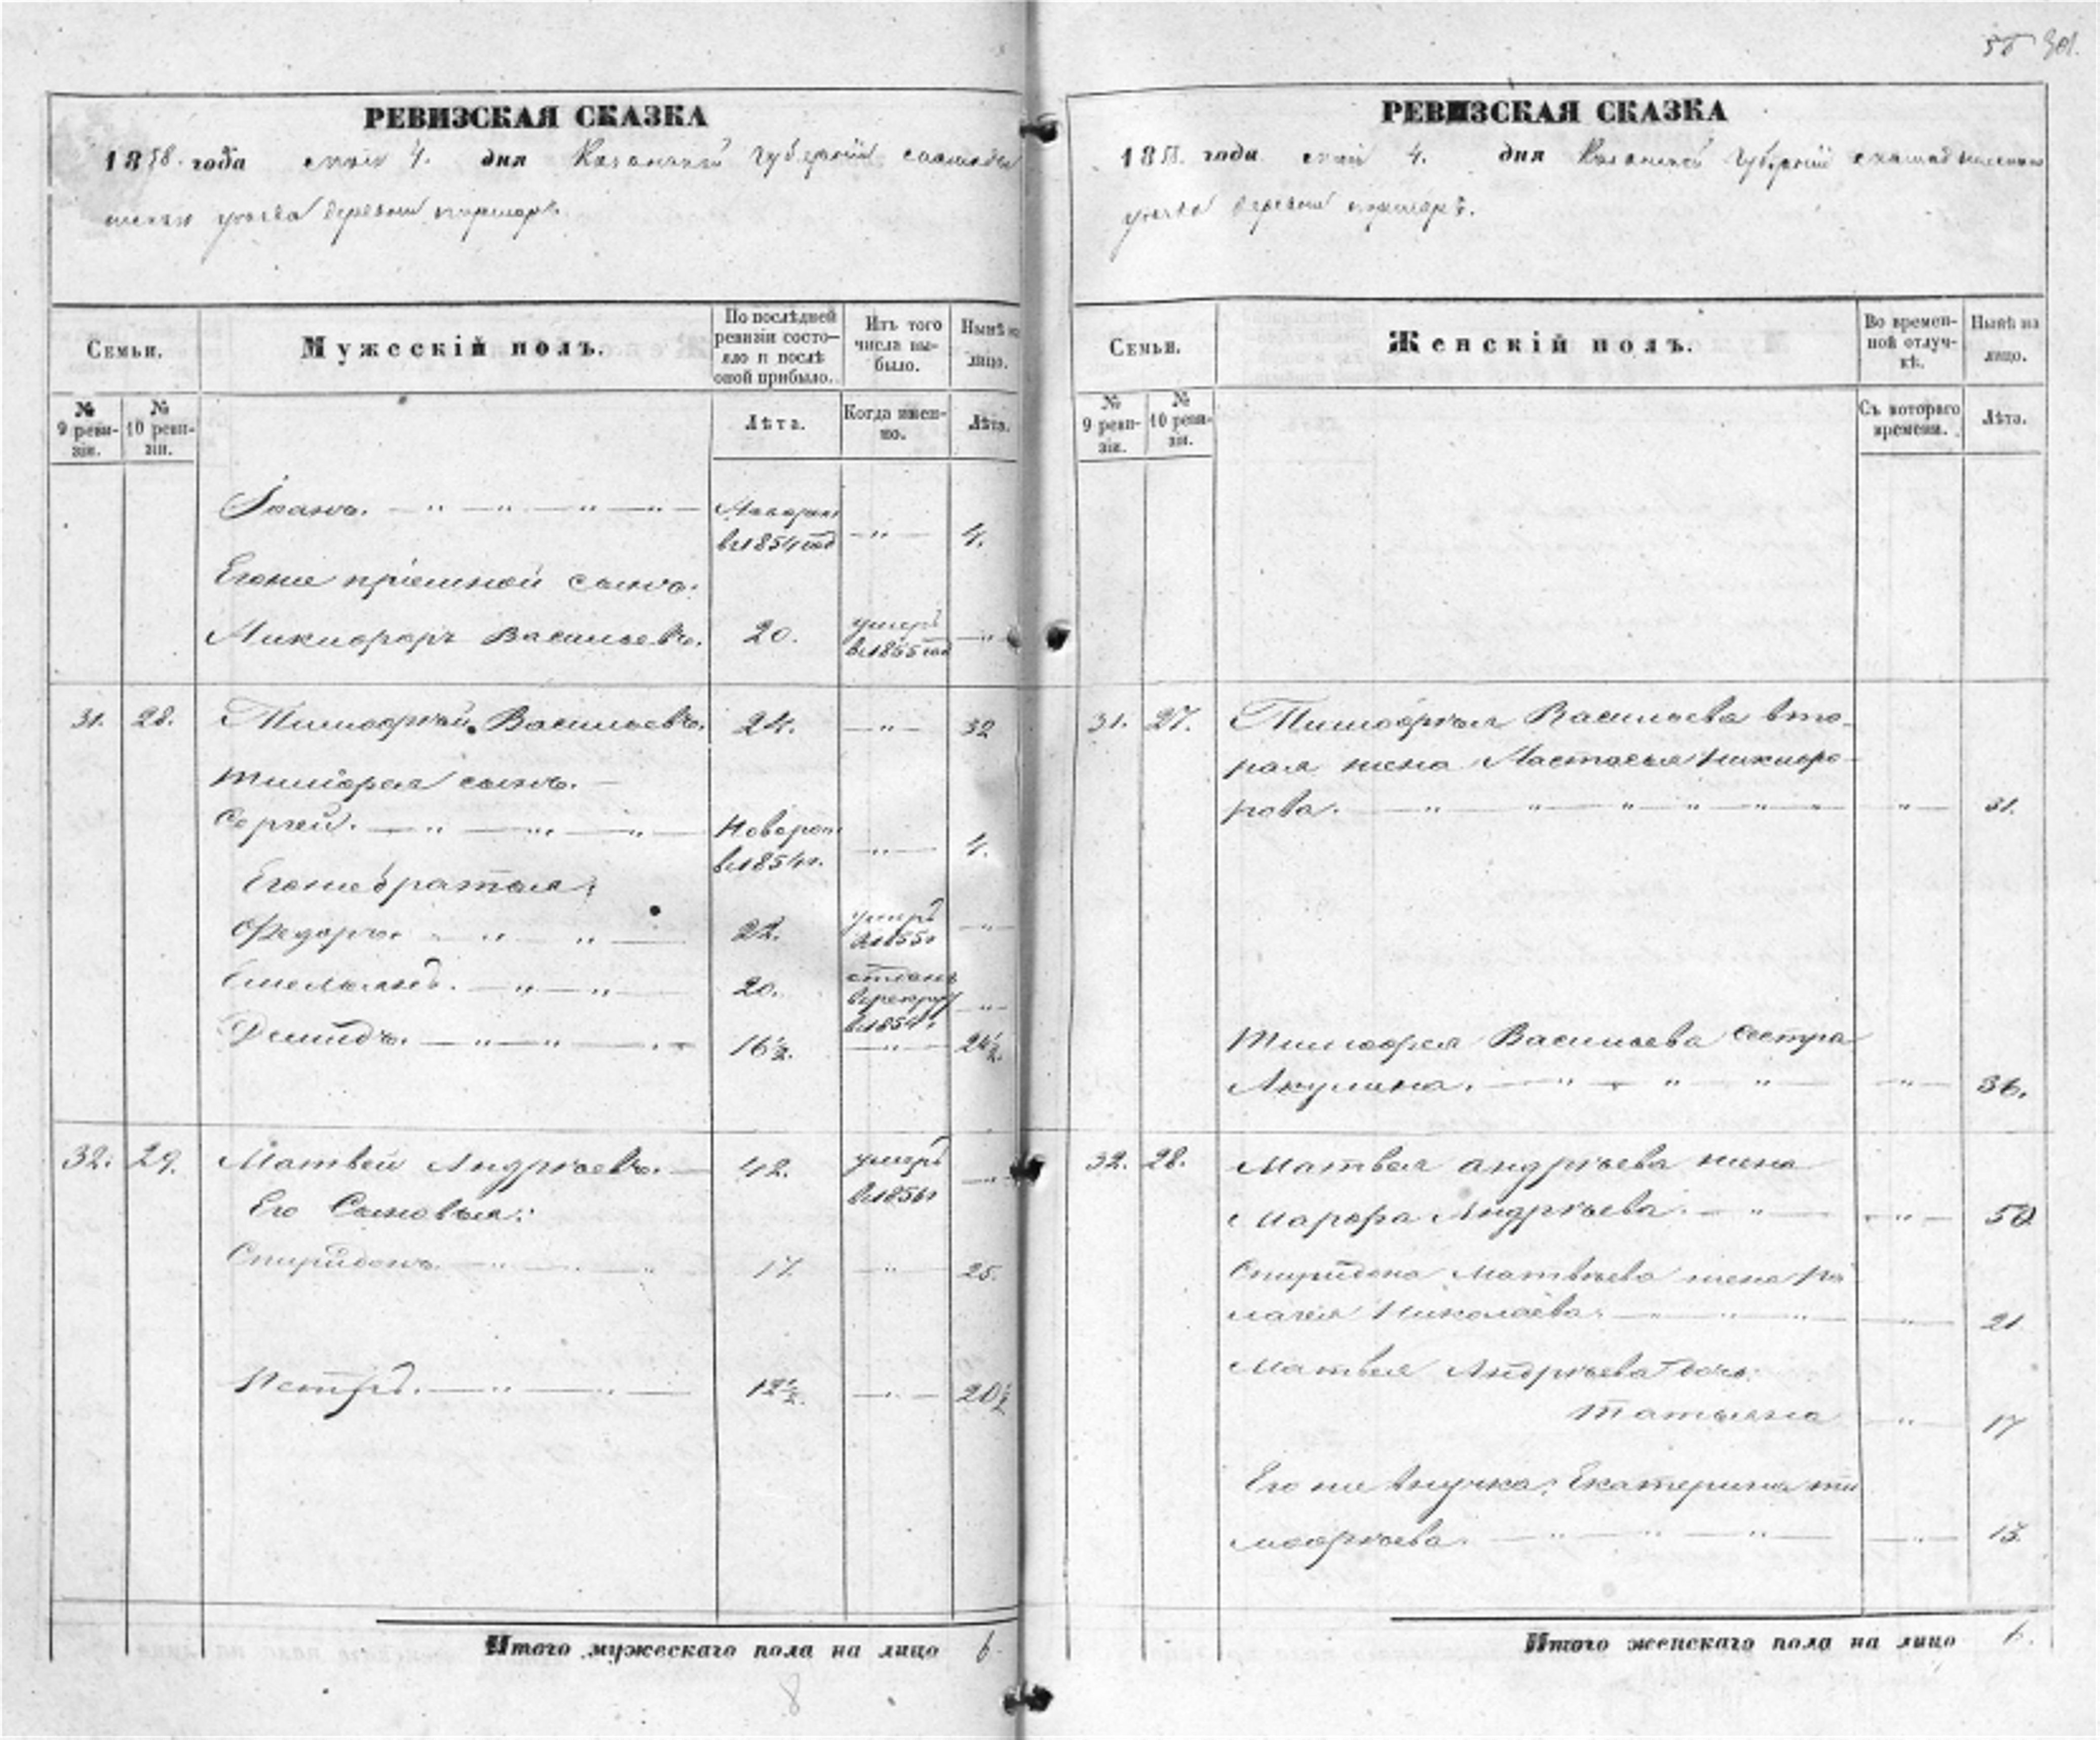 301.
РЕВИЗСКАЯ СКАЗКА
1858. года маія 4. дня Казанской губерніи
уѣзда деревни
Семьи.
Мужескій полъ.
По послѣдней ревизіи состояло и послѣ оной прибыло.
Изъ того числа выбыло.
Нынѣ на лицо.
№ 9 ревизіи.
№ 10 ревизіи.
Лѣта.
Когда именно.
Лѣта.
Іоанъ. — " — " — " — " — Новорож
в 1854 год — " — 4.
Егоже пріемной сынъ:
Никифоръ Васильевъ. 20. умеръ
в 1855 год — " —
31. 28. Тимофѣй Васильевъ. 24. — " — 32
Тимофея сынъ. —
Сергей. — " — " — " — Новорож.
в 1854 г. — " — 4.
Егоже братья:
Федоръ. " — " — 22. умеръ
в 1855 г — " —
Емельянъ. — " — " — 20. отданъ
в рекруты
в 1854 г. — " —
Демидъ. — " — " — 16½. — " — 24½.
32. 29. Матвей Андрѣевъ. — 42. умеръ
в 1856 г — " —
Его Сыновья:
Спиридонъ. — " — " 17. — " — 25.
Петръ. — " — " — 12½. — " — 20½
Итого мужескаго пола на лицо 6.
8
РЕВИЗСКАЯ СКАЗКА
1858. года маія 4. дня Казанской губерніи
уѣзда деревни
Семьи.
Женскій полъ.
Во временной отлучкѣ.
Нынѣ на лицо.
№ 9 ревизіи.
№ 10 ревизіи.
Съ котораго времени.
Лѣта.
31. 27. Тимофѣя Васильева вто-
рая жена Настасья Никифо-
рова. — " — " — " — " — " — " — 31.
Тимофея Васильева сестра
Акулина. — " — " — " — " — 36.
32. 28. Матвея андрѣева жена
Марфа Андрѣева. — " — " — 50
Спиридона Матвѣева жена Пе
лагея Николаева. — " — " — " — 21
Матвея Андрѣева дочь:
Татьяна — " — 17
Его же внучка: Екатерина ти
мофѣева. — " — " — " — " — 13.
Итого женскаго пола на лицо 6.